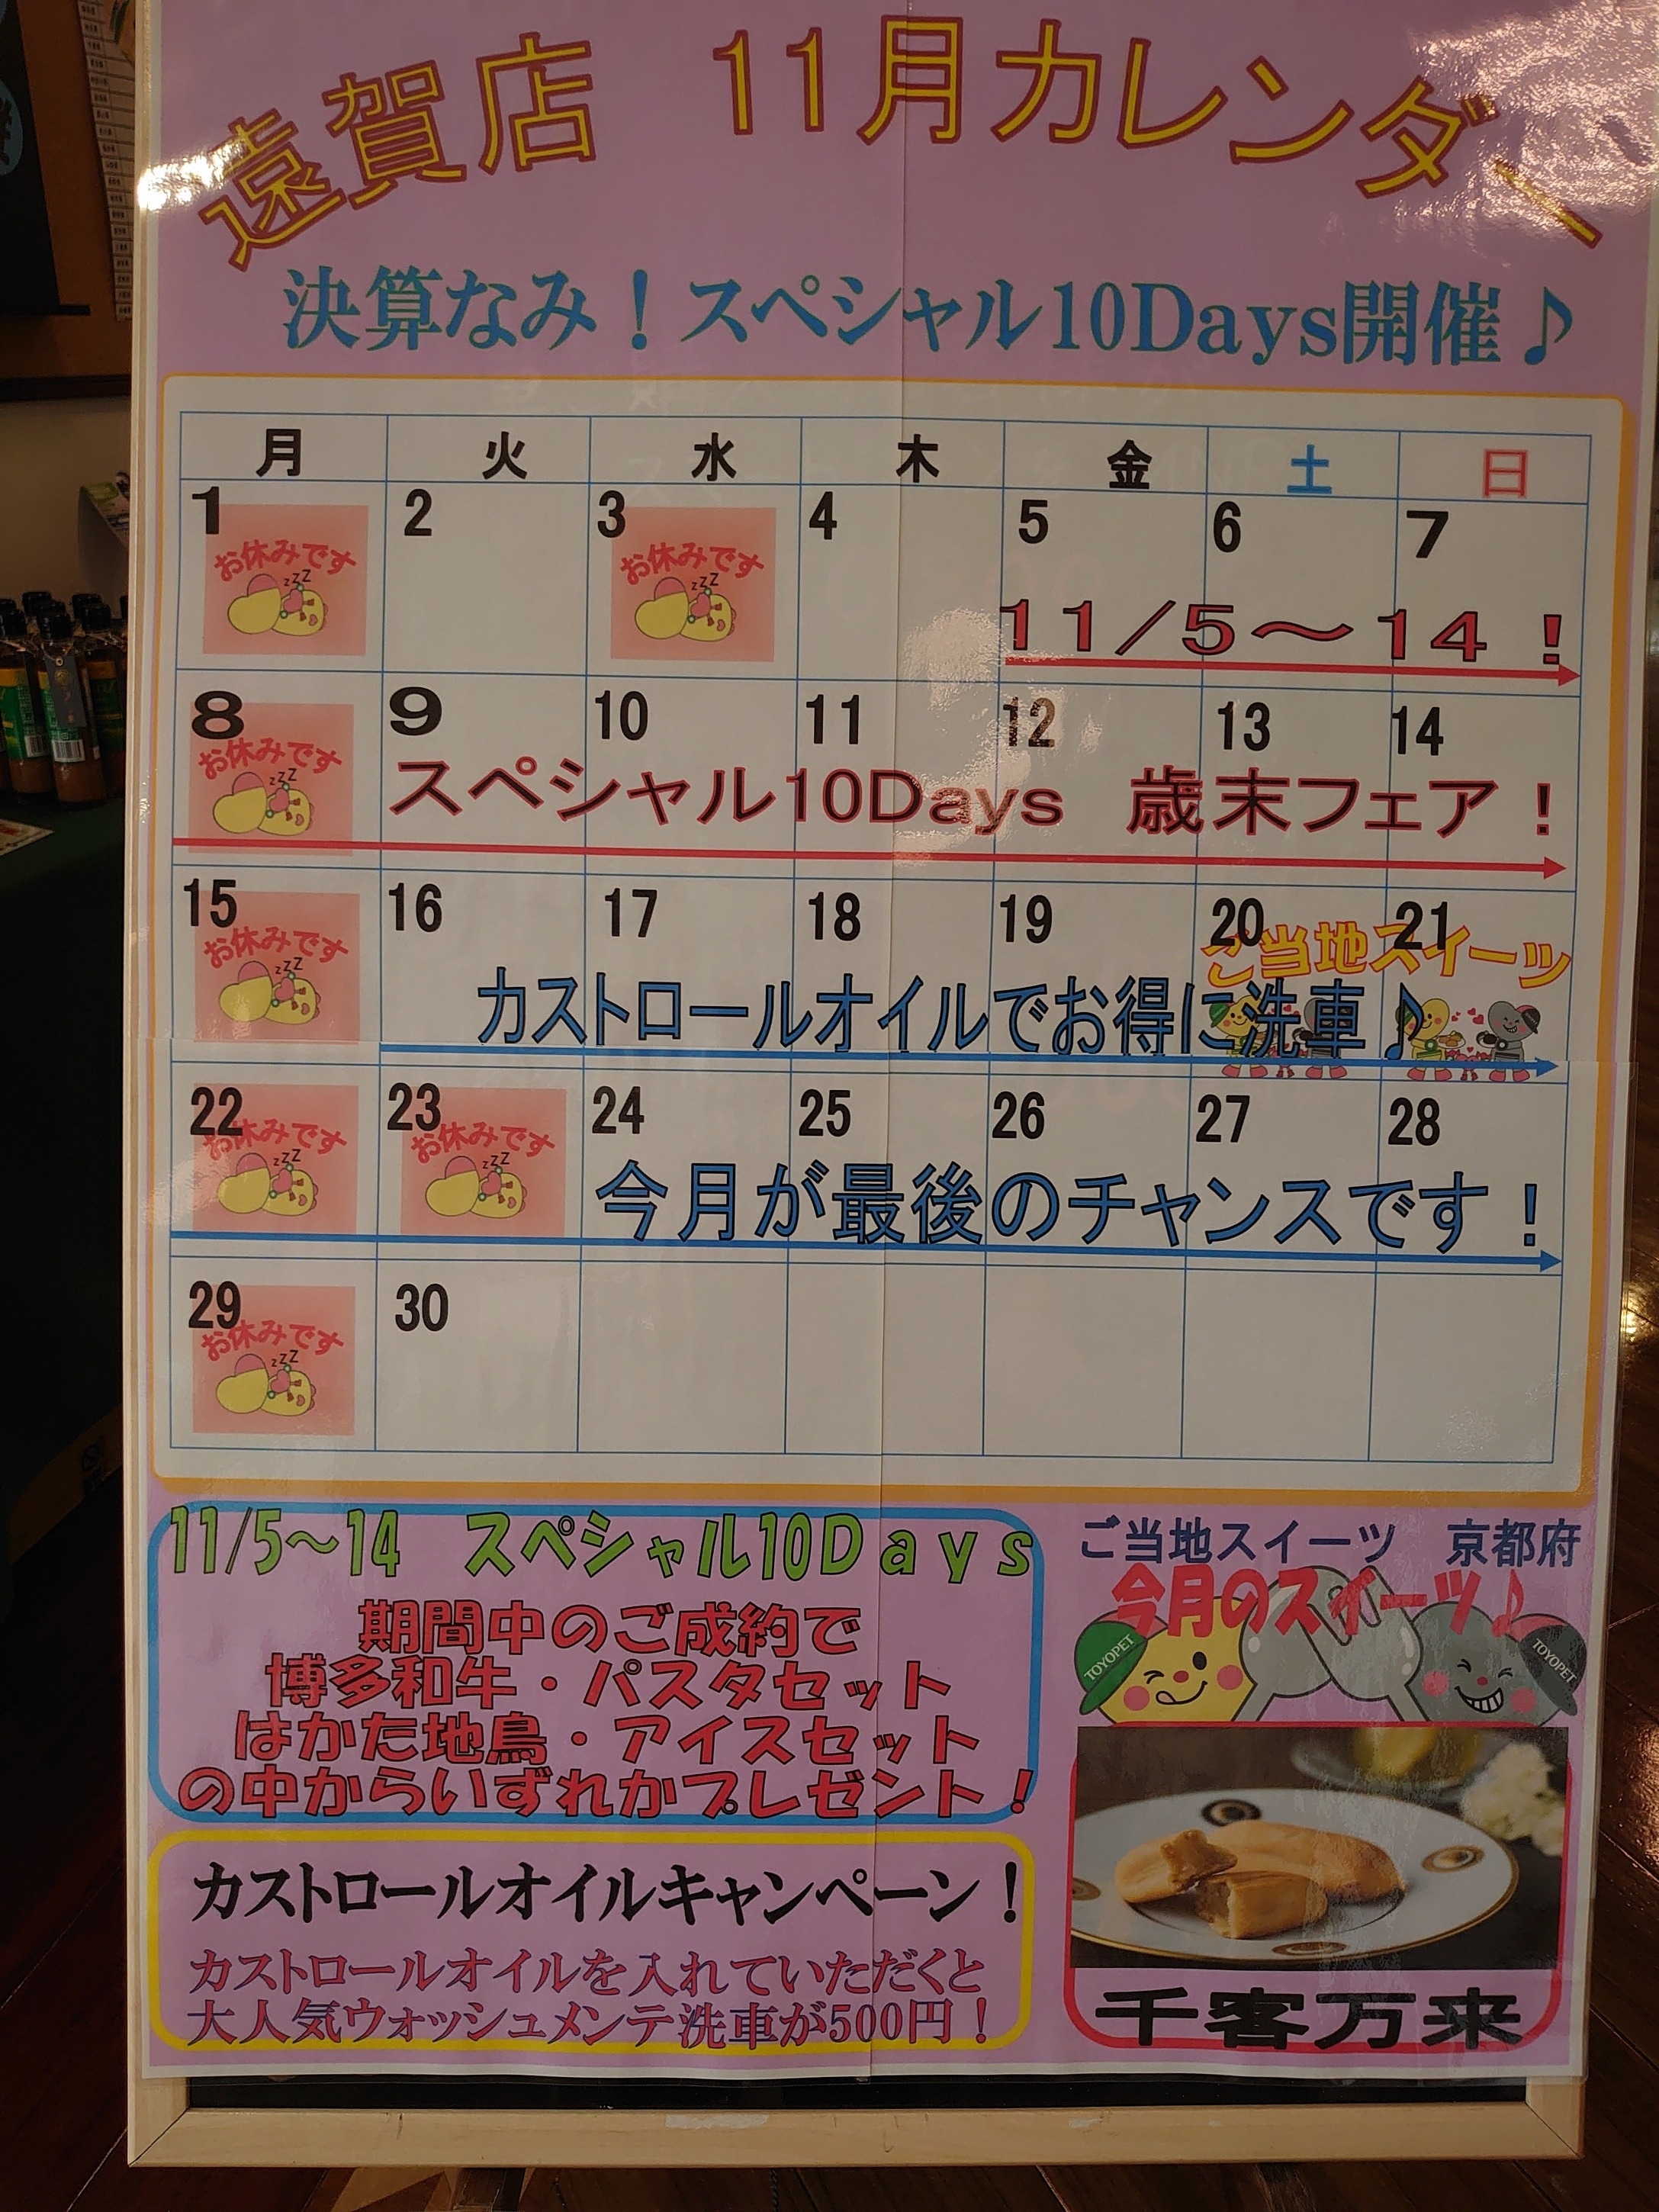 遠賀店 11月カレンダー
決算なみ！スペシャル10Days開催♪
月 火 水 木 金 土 日
1 2 3 4 5 6 7
お休みです お休みです
zzZ zzZ
11/5～14！
8 9 10 11 12 13 14
お休みです
zzZ
スペシャル10Days 歳末フェア！
15 16 17 18 19 20 21
お休みです
zzZ
ご当地スイーツ
カストロールオイルでお得に洗車♪
22 23 24 25 26 27 28
お休みです お休みです
zzZ zzZ
今月が最後のチャンスです！
29 30
お休みです
zzZ
11/5～14 スペシャル10Days
期間中のご成約で
博多和牛・パスタセット
はかた地鳥・アイスセット
の中からいずれかプレゼント！
カストロールオイルキャンペーン！
カストロールオイルを入れていただくと
大人気ウォッシュメンテ洗車が500円！
ご当地スイーツ 京都府
今月のスイーツ♪
TOYOPET TOYOPET
千客万来